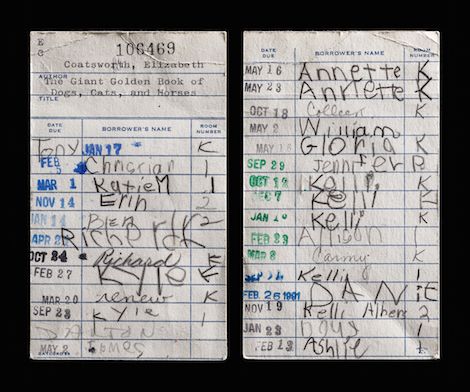 E
G
106469
Coatsworth, Elizabeth
AUTHOR
The Giant Golden Book of
TITLE
Dogs, Cats, and Horses
DATE DUE BORROWER'S NAME ROOM NUMBER
Tony JAN 17 K
FEB 5 Christian 1
MAR 1 Katie M 1
NOV 14 Erin 2
JAN 14 Ben 2
APR 2 Richard K
OCT 24 Richard K
FEB 27 Kyle K
MAR 20 renew K
SEP 28 Kyle 1
DALTON
MAY 2 James
DATE DUE BORROWER'S NAME ROOM NUMBER
MAY 16 Annette K
MAY 23 Annette K
OCT 18 Colleen K
MAY 2 William
Gloria K
SEP 29 Jennifer
OCT 13 Kelli K
DEC 7 Kelli K
JAN Kelli K
FEB 23 Allison 1
MAR 8 Carmy K
SEP Kelli 1
FEB 25 1981 DANit
NOV 19 Kelli Albers 2
JAN 23 Doug 1
FEB 13 Ashlie 1